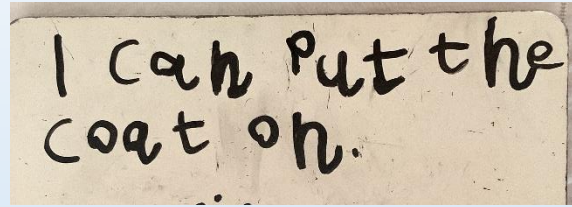 I can Put the
coat on.